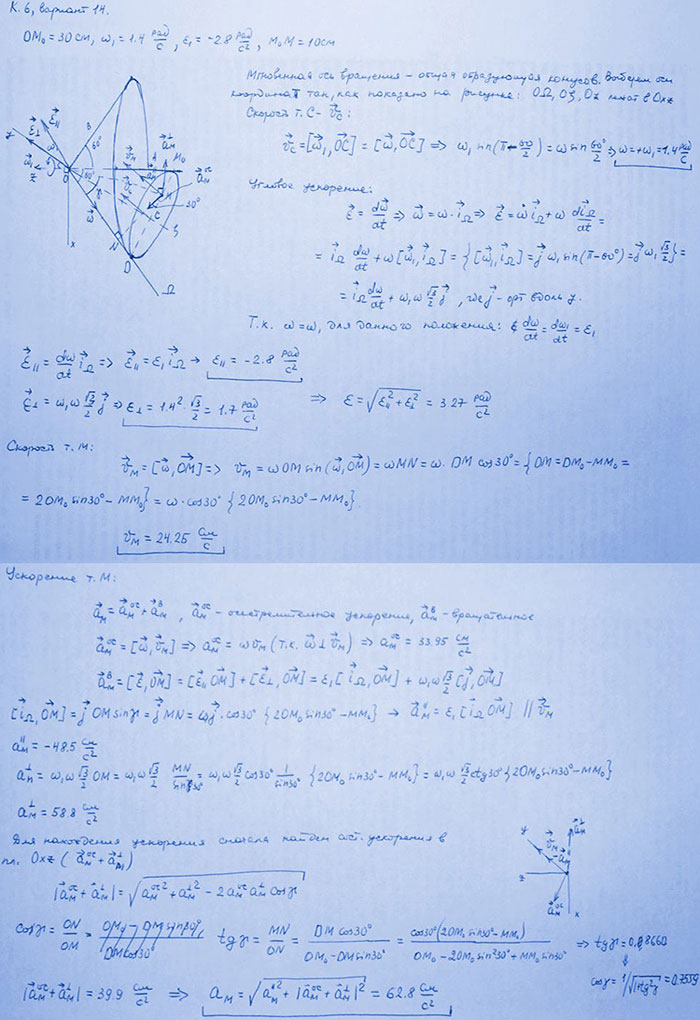 К.6, вариант 14.
OM₀ = 30 см, ω₁ = 1.4 рад/с, ε₁ = -2.8 рад/с², M₀M = 10 см
Мгновенная ось вращения – общая образующая конусов. Выберем оси
координат так, как показано на рисунке: OΩ, Oζ, Oz лежат в Oxz
Скорость т. C - v⃗_C:
v⃗_C = [ω⃗₁, OC⃗] = [ω⃗, OC⃗] ⇒ ω₁ sin(π - 60°/2) = ω sin 60°/2 ⇒ ω = +ω₁ = 1.4 рад/с
Угловое ускорение:
ε⃗ = dω⃗/dt ⇒ ω⃗ = ω·i⃗_Ω ⇒ ε⃗ = ω̇ i⃗_Ω + ω di⃗_Ω/dt =
= i⃗_Ω dω/dt + ω[ω⃗₁, i⃗_Ω] = {[ω⃗₁, i⃗_Ω] = j⃗ ω₁ sin(π-60°) = j⃗ ω₁ √3/2} =
= i⃗_Ω dω/dt + ω₁ω √3/2 j⃗, где j⃗ - орт вдоль y.
Т.к. ω = ω₁ для данного положения: dω/dt = dω₁/dt = ε₁
ε⃗_∥ = dω/dt i⃗_Ω ⇒ ε⃗_∥ = ε₁ i⃗_Ω → ε_∥ = -2.8 рад/с²
ε⃗_⊥ = ω₁ω √3/2 j⃗ ⇒ ε_⊥ = 1.4²·√3/2 = 1.7 рад/с² ⇒ ε = √(ε_∥² + ε_⊥²) = 3.27 рад/с²
Скорость т. M:
v⃗_M = [ω⃗, OM⃗] ⇒ v_M = ω OM sin(ω⃗, OM⃗) = ω MN = ω · DM cos30° = {DM = DM₀ - MM₀ =
= 2OM₀ sin30° - MM₀} = ω·cos30° {2OM₀ sin30° - MM₀}
v_M = 24.25 см/с
Ускорение т. M:
a⃗_M = a⃗_M^ос + a⃗_M^в, a⃗_M^ос - осестремительное ускорение, a⃗_M^в - вращательное
a⃗_M^ос = [ω⃗, v⃗_M] ⇒ a_M^ос = ω v_M (т.к. ω⃗ ⊥ v⃗_M) ⇒ a_M^ос = 33.95 см/с²
a⃗_M^в = [ε⃗, OM⃗] = [ε⃗_∥, OM⃗] + [ε⃗_⊥, OM⃗] = ε₁[i⃗_Ω, OM⃗] + ω₁ω √3/2 [j⃗, OM⃗]
[i⃗_Ω, OM⃗] = j⃗ OM sinγ = j⃗ MN = j⃗·cos30° {2OM₀ sin30° - MM₀} → a⃗_M^∥ = ε₁[i⃗_Ω OM⃗] ∥ v⃗_M
a_M^∥ = -48.5 см/с²
a_M^⊥ = ω₁ω √3/2 OM = ω₁ω √3/2 MN/sin30° = ω₁ω √3/2 cos30° 1/sin30° {2OM₀ sin30° - MM₀} = ω₁ω √3/2 ctg30° {2OM₀ sin30° - MM₀}
a_M^⊥ = 58.8 см/с²
Для нахождения ускорения сначала найдем сост. ускорения в
пл. Oxz (a⃗_M^ос + a⃗_M^⊥)
|a⃗_M^ос + a⃗_M^⊥| = √(a_M^ос² + a_M^⊥² - 2a_M^ос a_M^⊥ cosγ)
cosγ = ON/OM tgγ = MN/ON = DM cos30°/(OM₀ - DM sin30°) = cos30°(2OM₀ sin30° - MM₀)/(OM₀ - 2OM₀ sin²30° + MM₀ sin30°) ⇒ tgγ = 0.8660
cosγ = 1/√(1+tg²γ) = 0.7559
|a⃗_M^ос + a⃗_M^⊥| = 39.9 см/с² ⇒ a_M = √(a_M^∥² + |a⃗_M^ос + a⃗_M^⊥|²) = 62.8 см/с²